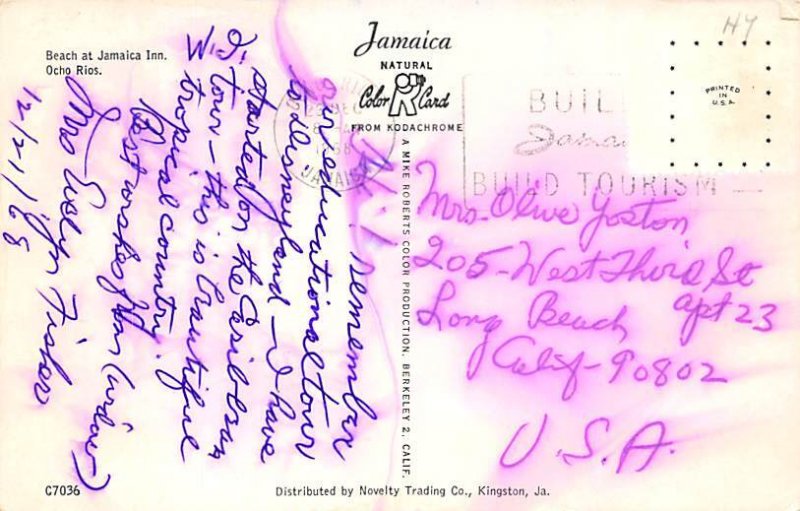 Beach at Jamaica Inn.
Ocho Rios.
Jamaica
NATURAL
Color Card
FROM KODACHROME
HY
PRINTED
IN
U.S.A.
JAMAICA
BUIL
Jamai
BUILD TOURISM
A MIKE ROBERTS COLOR PRODUCTION. BERKELEY 2, CALIF.
Hi. Remember
our educational tour
to Disneyland - I have
started on the
tour - this is beautiful
tropical country.
Best wishes
Mrs Evelyn Fisher
12/21/68
Mrs. Olive Yoston
205 - West Third St
apt 23
Long Beach
Calif - 90802
U.S.A.
C7036
Distributed by Novelty Trading Co., Kingston, Ja.